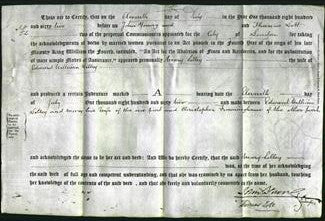 These are to Certify, that on the Seventh day of July in the Year One thousand eight hundred
and sixty two before us John Young and Thomas Lott
two of the perpetual Commissioners appointed for the City of London for taking
the acknowledgments of deeds by married women pursuant to an Act passed in the Fourth Year of the reign of his late
Majesty King William the Fourth, intituled "An Act for the Abolition of Fines and Recoveries, and for the substitution of
more simple Modes of Assurance," appeared personally the wife of
Edward William
and produced a certain Indenture marked A bearing date the Seventh
day of July One thousand eight hundred and sixty two and made between Edward William
and his wife of the one part and Christopher of the other part
and acknowledged the same to be her act and deed: And We do hereby Certify, that the said
was, at the time of her acknowledging
the said deed of full age and competent understanding, and that she was examined by us apart from her husband, touching
her knowledge of the contents of the said deed, and that she freely and voluntarily consented to the same.
Thomas Lott